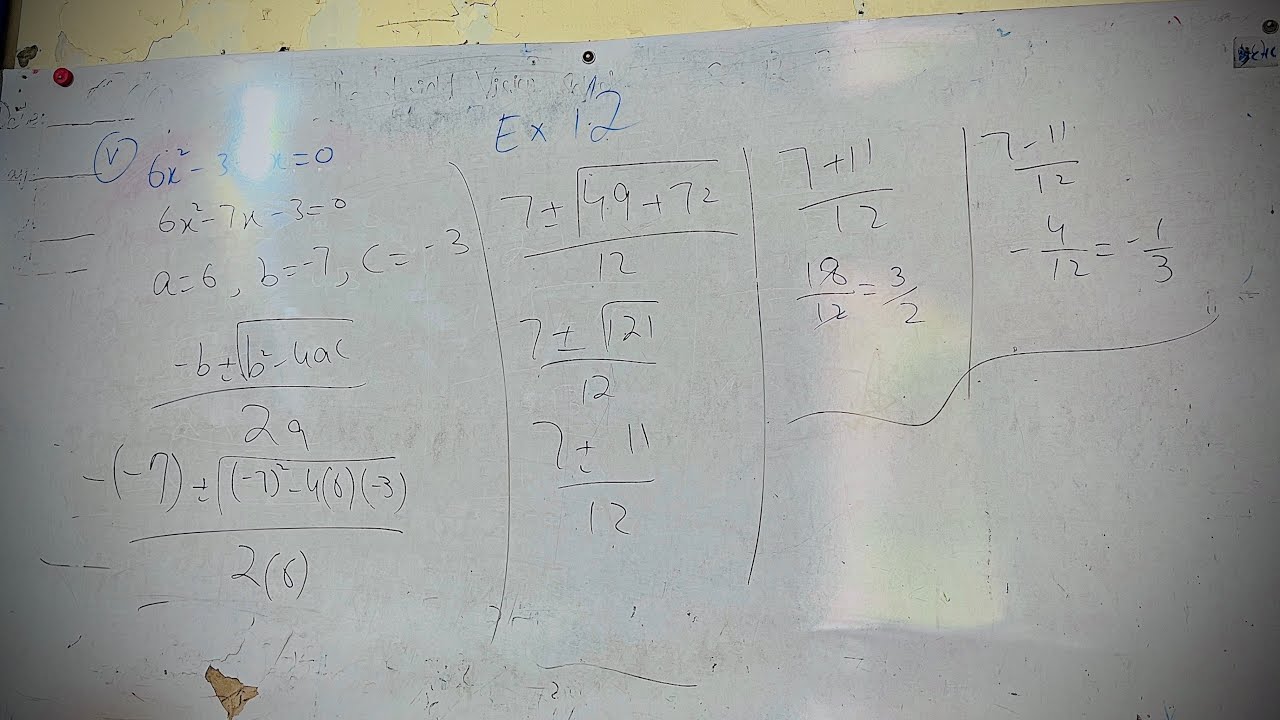 Ex 1.2
(v) 6x² - 3 - x = 0
6x² - 7x - 3 = 0
a = 6, b = -7, c = -3
-b ± √(b² - 4ac)
2a
-(-7) ± √((-7)² - 4(6)(-3))
2(6)
7 ± √(49 + 72)
12
7 ± √121
12
7 ± 11
12
7 + 11
12
18/12 = 3/2
7 - 11
12
-4/12 = -1/3